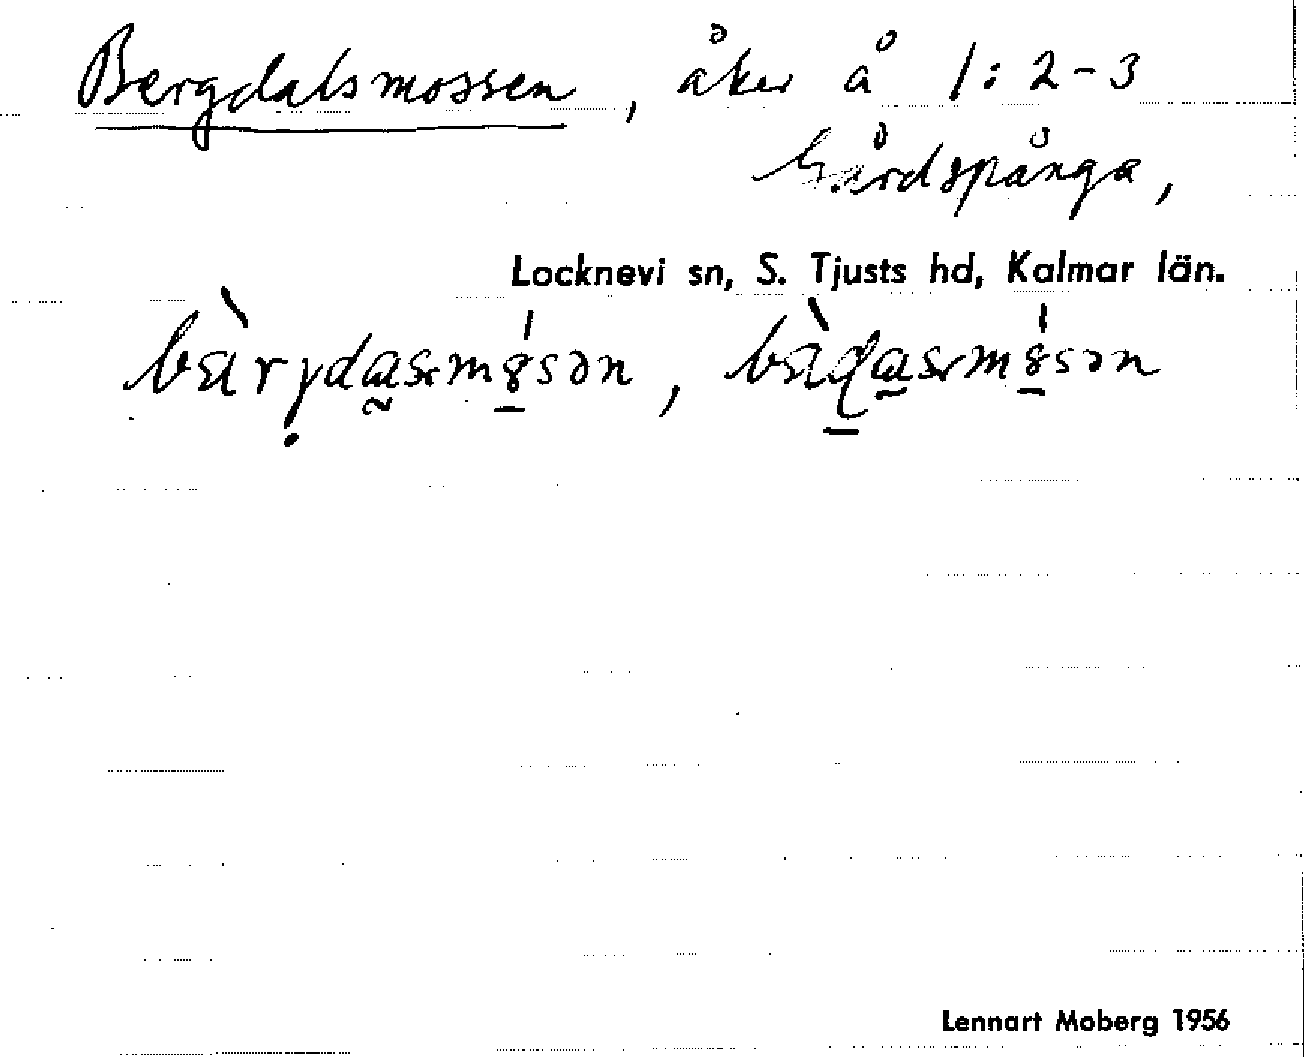 Bergdalsmossen, åker å 1:2-3
Gårdspånga,
Locknevi sn, S. Tjusts hd, Kalmar län.
Lennart Moberg 1956